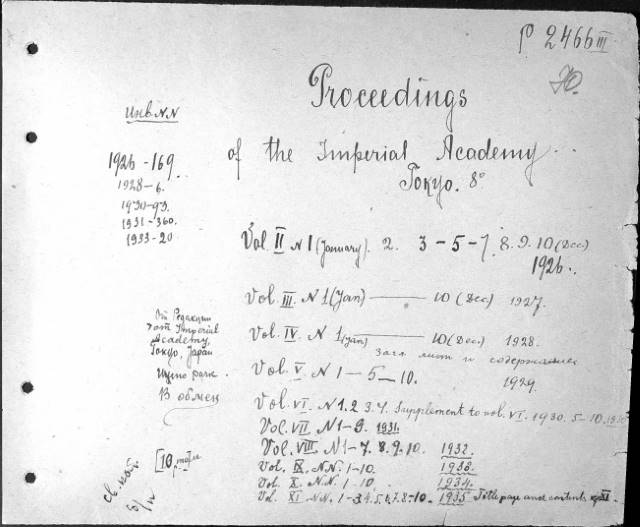 P 2466 III
Proceedings
of the Imperial Academy.
Tokyo. 8°
Инв NN
1926-169.
1928-6.
1930-93.
1931-360.
1933-20
Vol II N 1 (January). 2. 3-5-7. 8. 9. 10 (Dec)
1926.
Vol. III. N 1 (Jan) —— 10 (Dec) 1927.
Vol. IV. N 1 (Jan) —— 10 (Dec.) 1928.
загл лист и содержание
Vol. V. N 1-5-10. 1929.
От Редакции
от Imperial
Academy,
Tokyo, Japan
Ueno park.
В обмен
Vol. VI. N 1. 2 3. 4. Supplement to vol. VI. 1930. 5-10.
Vol. VII N 1-9. 1931.
Vol. VIII. N 1-7. 8. 9. 10. 1932.
Vol. IX. N.N. 1-10. 1933.
Vol. X. N.N. 1-10. 1934.
Vol. XI NN. 1-3. 4. 5. 6. 7. 8-10. 1935 Title page and contents XI.